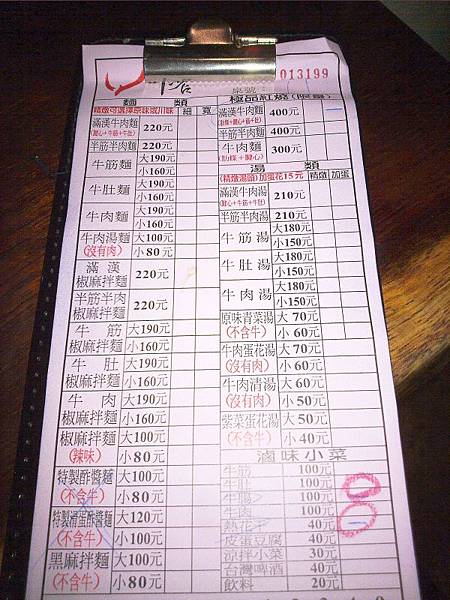 桌號:
013199
麵 類
精燉可選擇原味或川味 細 寬
滿漢牛肉麵 220元
(腱心+牛筋+牛肚)
半筋半肉麵 220元
牛筋麵 大190元
小160元
牛肚麵 大190元
小160元
牛肉麵 大190元
小160元
牛肉湯麵 大100元
(沒有肉) 小80元
滿漢
椒麻拌麵 220元
半筋半肉
椒麻拌麵 220元
牛筋 大190元
椒麻拌麵 小160元
牛肚 大190元
椒麻拌麵 小160元
牛肉 大190元
椒麻拌麵 小160元
椒麻拌麵 大100元
(辣味) 小80元
特製酢醬麵 大100元
(不含牛) 小80元
特製滑蛋酢醬麵 大120元
(不含牛) 小100元
黑麻拌麵 大100元
(不含牛) 小80元
極品紅燒(限量)
滿漢牛肉麵 400元
半筋半肉麵 400元
牛肉麵 300元
(肋條+腱心)
湯 類
(精燉湯頭)加蛋花15元 精燉 加蛋
滿漢牛肉湯 210元
(腱心+牛筋+牛肚)
半筋半肉湯 210元
牛筋湯 大180元
小150元
牛肚湯 大180元
小150元
牛肉湯 大180元
小150元
原味青菜湯 大70元
(不含牛) 小60元
牛肉蛋花湯 大70元
(沒有肉) 小60元
牛肉清湯 大60元
(沒有肉) 小50元
紫菜蛋花湯 大50元
(不含牛) 小40元
滷味小菜
牛筋 100元
牛肚 100元
牛腸 100元
牛肉 100元
熱花干 40元
皮蛋豆腐 40元
涼拌小菜 30元
台灣啤酒 40元
飲料 20元